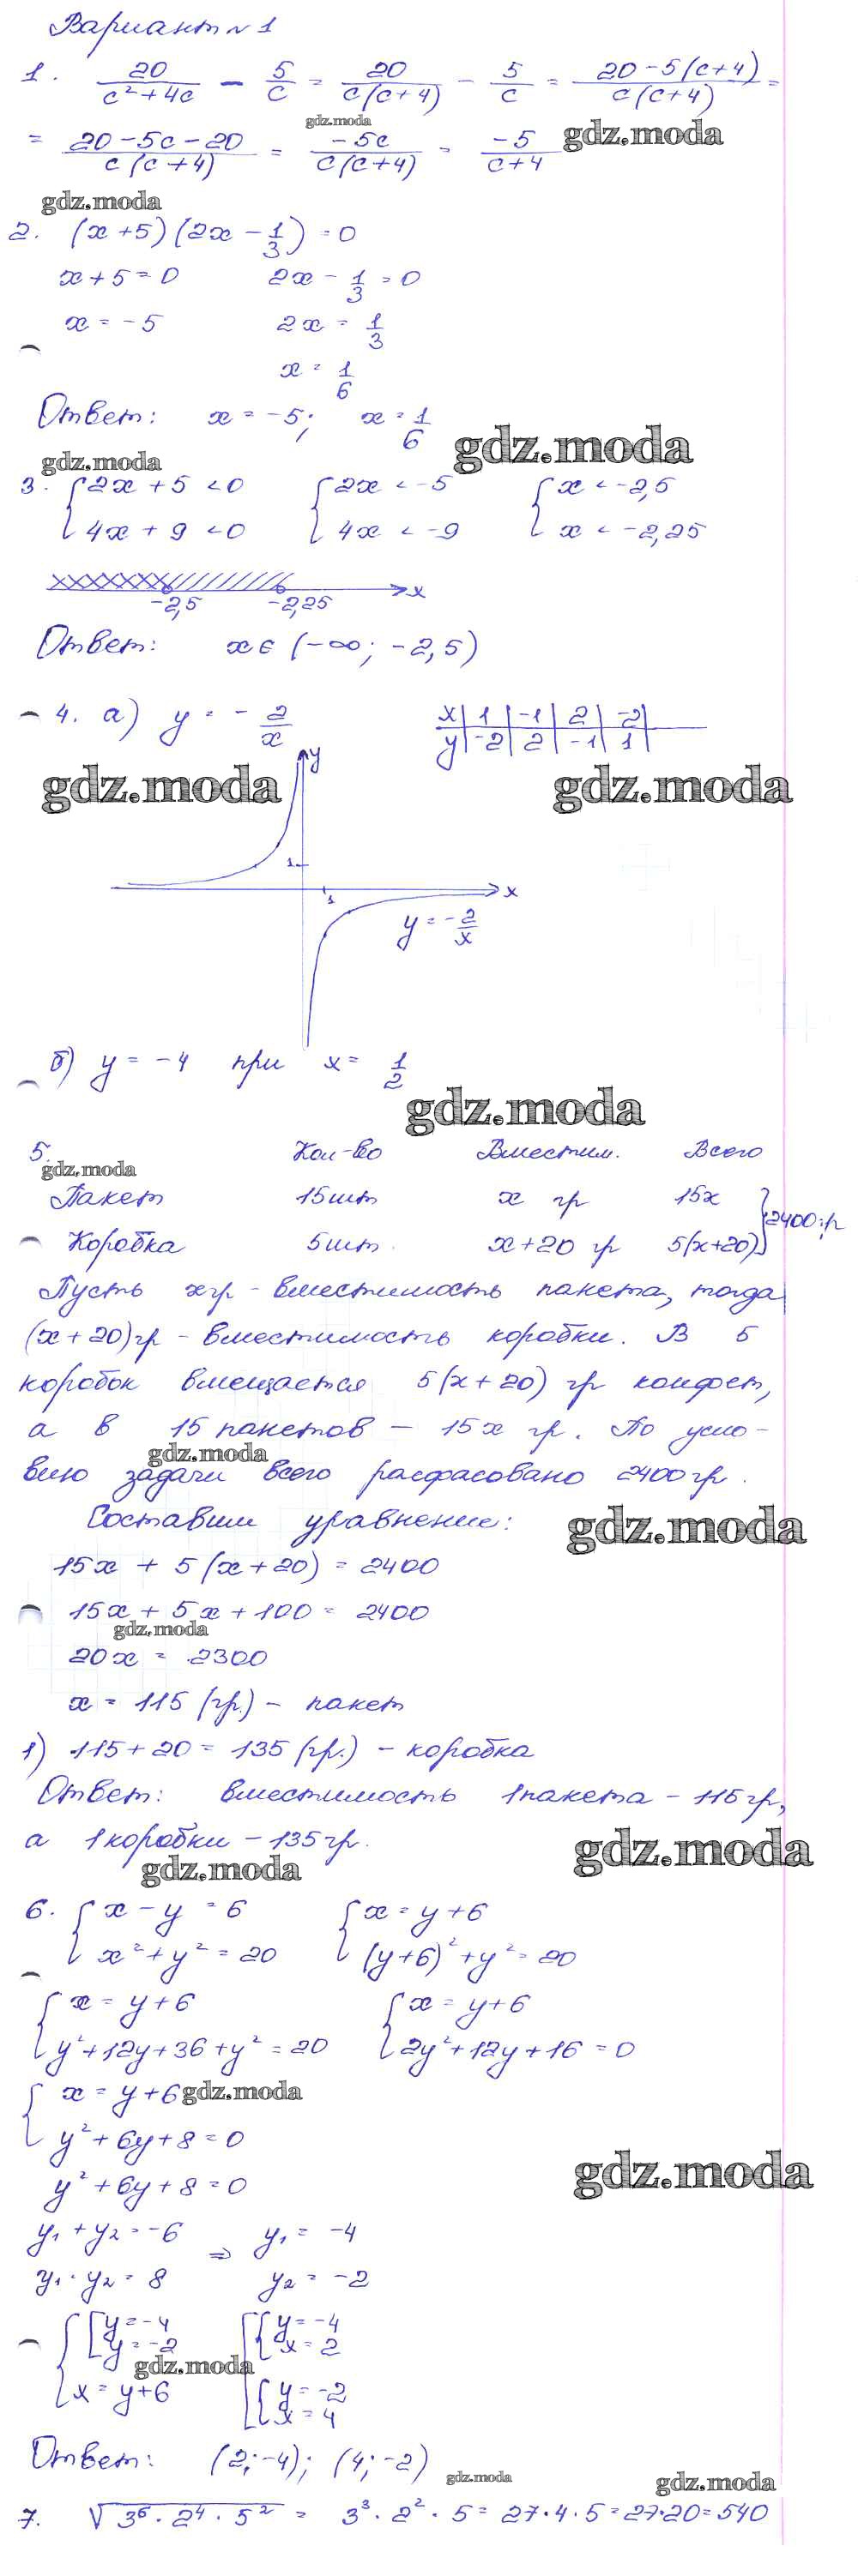 Вариант №1
1. 20/(c²+4c) - 5/c = 20/(c(c+4)) - 5/c = (20-5(c+4))/(c(c+4)) =
gdz.moda
= (20-5c-20)/(c(c+4)) = -5c/(c(c+4)) = -5/(c+4) gdz.moda
gdz.moda
2. (x+5)(2x - 1/3) = 0
x+5=0 2x - 1/3 = 0
x = -5 2x = 1/3
x = 1/6
Ответ: x = -5; x = 1/6
gdz.moda gdz.moda
3. { 2x + 5 < 0 { 2x < -5 { x < -2,5
4x + 9 < 0 4x < -9 x < -2,25
-2,5 -2,25 x
Ответ: x ∈ (-∞; -2,5)
4. а) y = - 2/x x | 1 | -1 | 2 | -2 |
y | -2 | 2 | -1 | 1 |
gdz.moda gdz.moda
y
1
1 x
y = -2/x
б) y = -4 при x = 1/2
gdz.moda
5. Кол-во Вместим. Всего
gdz.moda
Пакет 15шт x гр 15x
} 2400 гр
Коробка 5шт. x+20 гр 5(x+20)
Пусть x гр - вместимость пакета, тогда
(x+20) гр - вместимость коробки. В 5
коробок вмещается 5(x+20) гр конфет,
а в 15 пакетов - 15x гр. По усло-
gdz.moda
вию задачи всего расфасовано 2400 гр.
Составим уравнение: gdz.moda
15x + 5(x+20) = 2400
15x + 5x + 100 = 2400
gdz.moda
20x = 2300
x = 115 (гр.) - пакет
1) 115+20 = 135 (гр.) - коробка
Ответ: вместимость 1 пакета - 115 гр,
а 1 коробки - 135 гр. gdz.moda
gdz.moda
6. { x - y = 6 { x = y+6
x² + y² = 20 (y+6)² + y² = 20
{ x = y+6 { x = y+6
y² + 12y + 36 + y² = 20 2y² + 12y + 16 = 0
{ x = y+6 gdz.moda
y² + 6y + 8 = 0
y² + 6y + 8 = 0 gdz.moda
y₁ + y₂ = -6 ⇒ y₁ = -4
y₁ · y₂ = 8 y₂ = -2
{ [ y = -4 [ { y = -4
y = -2 x = 2
gdz.moda
x = y+6 { y = -2
x = 4
Ответ: (2; -4); (4; -2)
gdz.moda gdz.moda
7. √(3⁶ · 2⁴ · 5²) = 3³ · 2² · 5 = 27·4·5 = 27·20 = 540